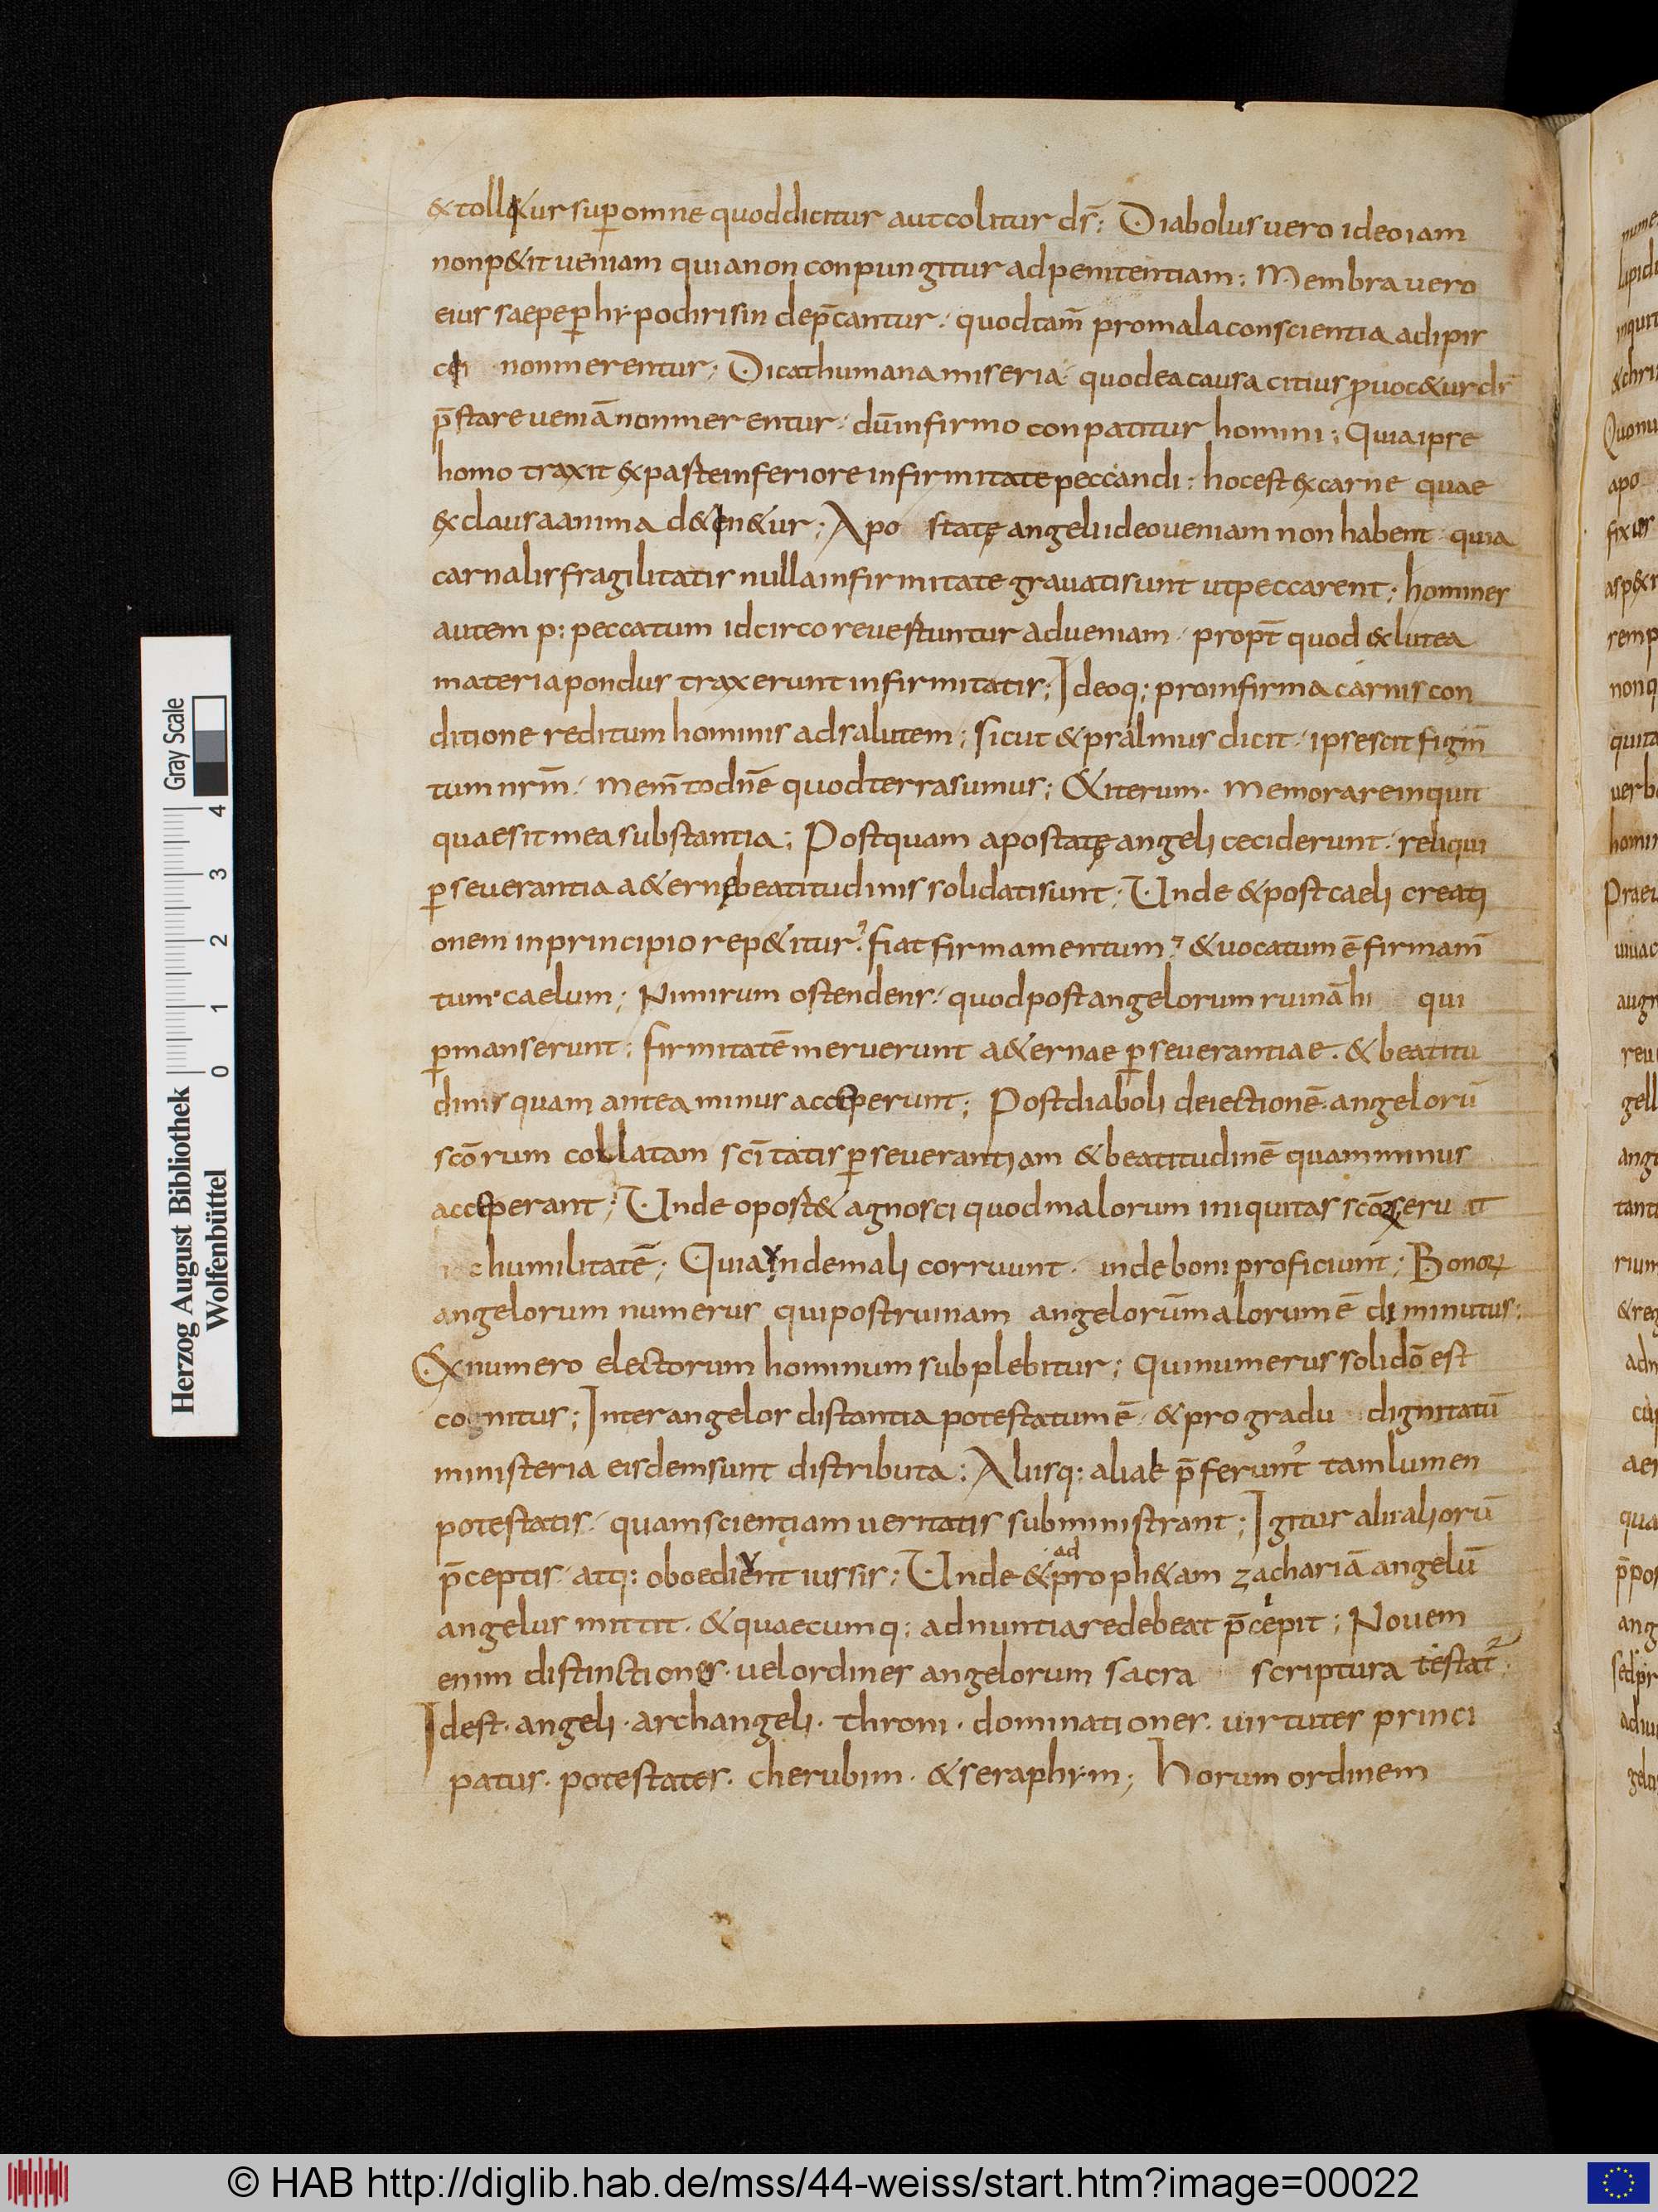 & toll&ur sup̄ omne quod dicitur aut colitur ds̄; Diabolus uero ideo iam
non p&it ueniam quia non conpungitur ad penitentiam; Membra uero
eius saepe ꝑ hypochrisin dep̄cantur. quod tam̄ pro mala conscientia adipis
ci non merentur; Dicat humana miseria quod ea causa citius ꝓuoc&ur ds̄
p̄stare ueniā non merentur. dū infirmo conpatitur homini; Quia ipse
homo traxit ex parte inferiore infirmitate peccandi; hoc est ex carne quae
exclausa anima d&in&ur; Apo statę angeli ideo ueniam non habent quia
carnalis fragilitatis nulla infirmitate grauati sunt ut peccarent; homines
autem p; peccatum idcirco reuertuntur ad ueniam. propt̄ quod ex lutea
materia pondus traxerunt infirmitatis; Ideoq; pro infirma carnis con
ditione reditum hominis ad salutem; sicut & psalmus dicit. ipse scit figm̄
tum nr̄m. mem̄to dn̄e quod terra sumus; & iterum. Memorare inquit
quae sit mea substantia; Postquam apostatę angeli ceciderunt. reliqui
ꝑseuerantia a&ernę beatitudinis solidati sunt; Unde & post caeli creati
onem in principio rep&itur. fiat firmamentum. & uocatum ē firmam̄
tum caelum; Nimirum ostendens. quod post angelorum ruinā hi qui
ꝑmanserunt; firmitatē meruerunt a&ernae ꝑseuerantiae. & beatitu
dinis quam antea minus acceperunt; Post diaboli deiectionē angelorū
scōrum collatam scītatis ꝑseuerantiam & beatitudinē quam minus
acceperant; Unde oport& agnosci quod malorum iniquitas scōꝝ seru it
humilitatē; Quia unde mali corruunt. inde boni proficiunt; Bonoꝝ
angelorum numerus qui post ruinam angelorū malorum ē diminutus;
Ex numero electorum hominum subplebitur; Qui numerus soli dō est
cognitus; Inter angelos distantia potestatum ē. & pro gradu dignitatū
ministeria eisdem sunt distributa; Aliisq; alia p̄ferunt᷒ tam lumen
potestatis. quam scientiam ueritatis subministrant; Igitur alii aliorū
p̄ceptis. atq; oboediunt iussis; Unde &
ad
proph&am zachariā angelū
angelus mittit. & quaecumq; adnuntiare debeat p̄cepit; Nouem
enim distinctiones. uel ordines angelorum sacra scriptura testat᷒.
Idest. angeli. archangeli. throni. dominationes. uirtutes princi
patus. potestates. cherubim. & seraphym; Horum ordinem
Herzog August Bibliothek
Wolfenbüttel
0 1 2 3 4
Gray Scale
© HAB http://diglib.hab.de/mss/44-weiss/start.htm?image=00022